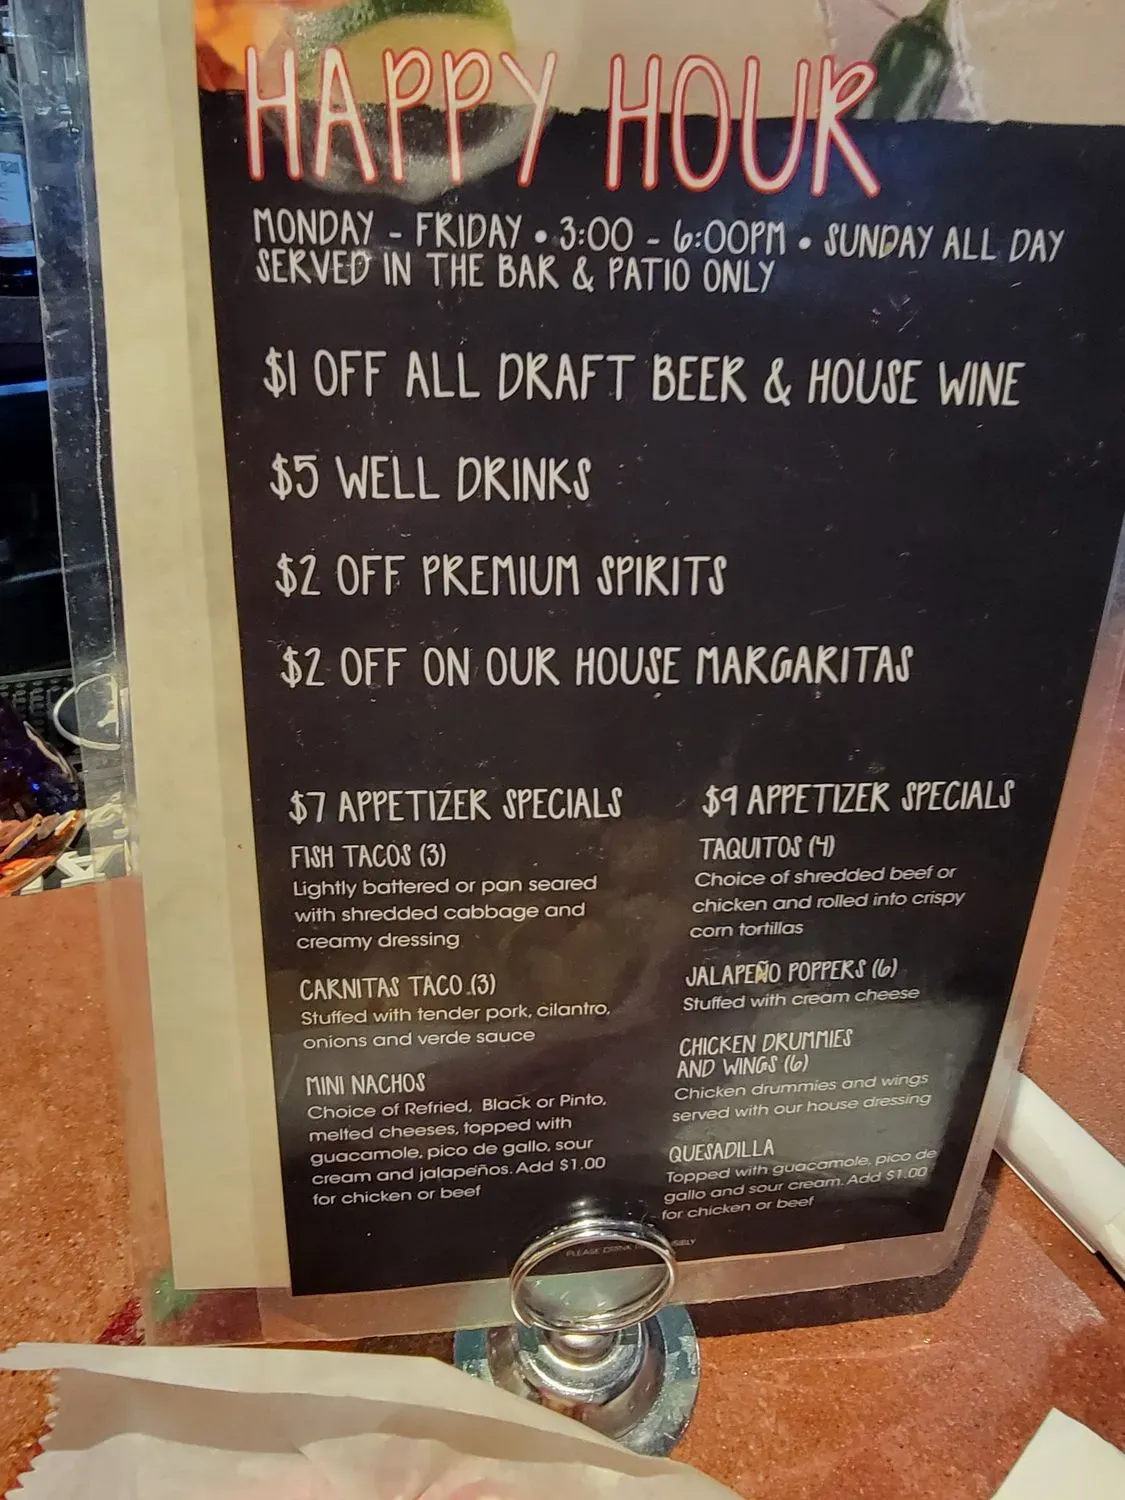 HAPPY HOUR
MONDAY - FRIDAY • 3:00 - 6:00PM • SUNDAY ALL DAY
SERVED IN THE BAR & PATIO ONLY
$1 OFF ALL DRAFT BEER & HOUSE WINE
$5 WELL DRINKS
$2 OFF PREMIUM SPIRITS
$2 OFF ON OUR HOUSE MARGARITAS
$7 APPETIZER SPECIALS
FISH TACOS (3)
Lightly battered or pan seared
with shredded cabbage and
creamy dressing
CARNITAS TACO (3)
Stuffed with tender pork, cilantro,
onions and verde sauce
MINI NACHOS
Choice of Refried, Black or Pinto,
melted cheeses, topped with
guacamole, pico de gallo, sour
cream and jalapeños. Add $1.00
for chicken or beef
$9 APPETIZER SPECIALS
TAQUITOS (4)
Choice of shredded beef or
chicken and rolled into crispy
corn tortillas
JALAPEÑO POPPERS (6)
Stuffed with cream cheese
CHICKEN DRUMMIES
AND WINGS (6)
Chicken drummies and wings
served with our house dressing
QUESADILLA
Topped with guacamole, pico de
gallo and sour cream. Add $1.00
for chicken or beef
PLEASE DRINK